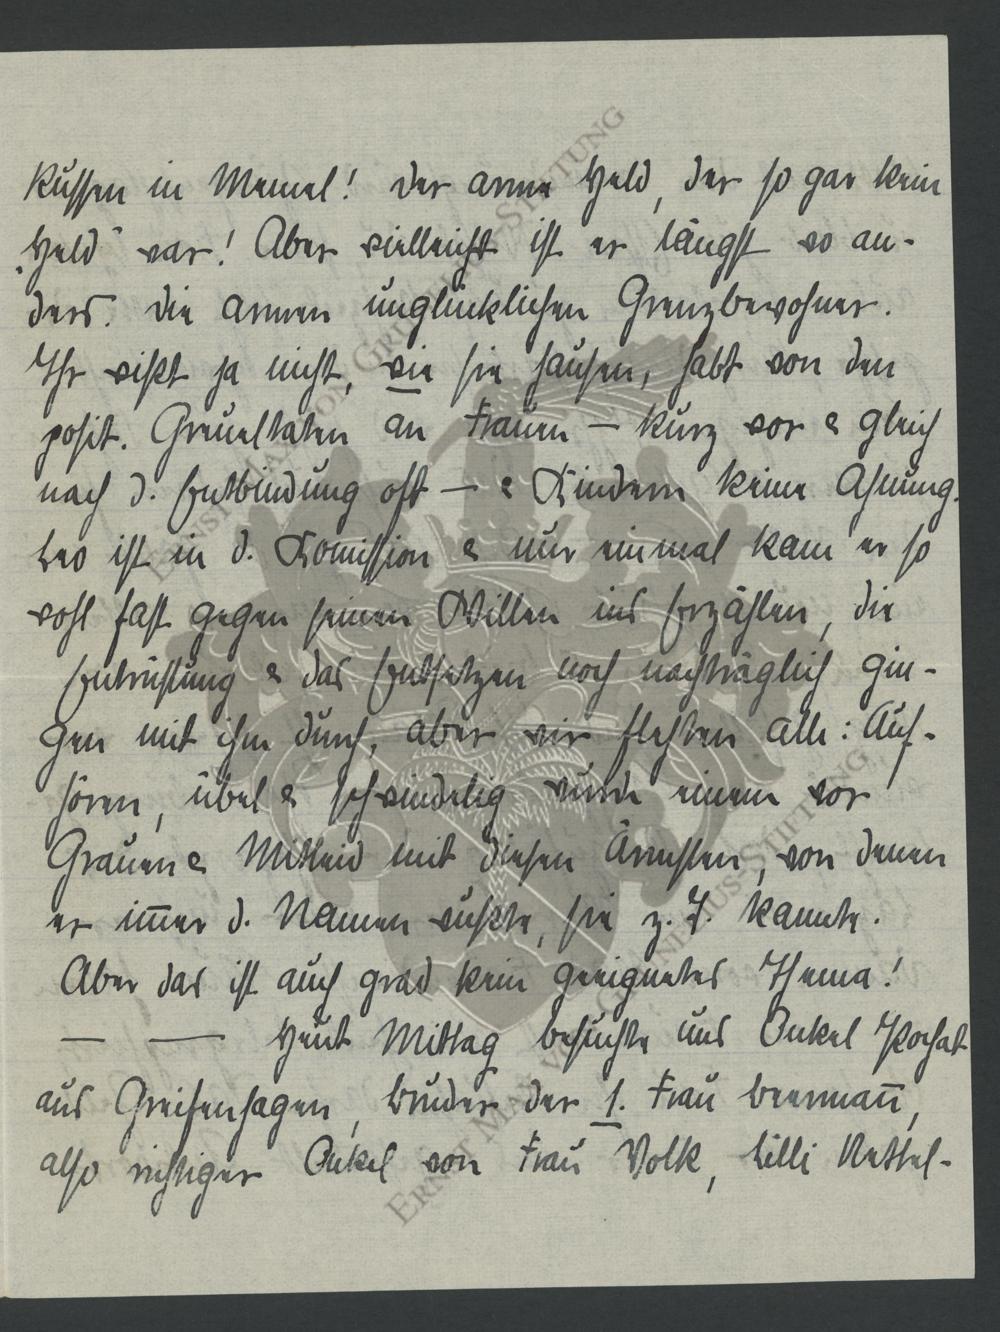 Russen in Memel! Der arme Held, der so gar kein
„Held" war! Aber vielleicht ist er längst wo an-
ders. Die armen unglücklichen Grenzbewohner.
Ihr wißt ja nicht, wie sie hausen, habt von den
posit. Greueltaten an Frauen – kurz vor & gleich
nach d. Entbindung oft – & Kindern keine Ahnung.
Leo ist in d. Komission & nur einmal kam er so
wohl fast gegen seinen Willen ins Erzählen, die
Entrüstung & das Entsetzen noch nachträglich gin-
gen mit ihm durch, aber wir flehten alle: Auf-
hören, übel & schwindelig wurde einem vor
Grauen & Mitleid mit diesen Ärmsten, von denen
er im̅er d. Namen wußte, sie z. T. kannte.
Aber das ist auch grad kein geeignetes Thema!
— — Heut Mittag besuchte uns Onkel
aus Greifenhagen, Bruder der 1. Frau Beerman̅,
also richtiger Onkel von Frau Volk, Lilli Rettel-
ERNST MAX VON GRUNELIUS-STIFTUNG
ERNST MAX VON GRUNELIUS-STIFTUNG